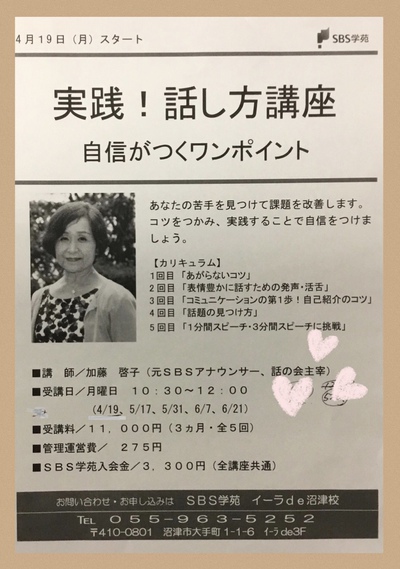 4月19日（月）スタート
SBS学苑
実践！話し方講座
自信がつくワンポイント
あなたの苦手を見つけて課題を改善します。
コツをつかみ、実践することで自信をつけま
しょう。
【カリキュラム】
1回目「あがらないコツ」
2回目「表情豊かに話すための発声・活舌」
3回目「コミュニケーションの第1歩！自己紹介のコツ」
4回目「話題の見つけ方」
5回目「1分間スピーチ・3分間スピーチに挑戦」
■講　師／加藤　啓子（元SBSアナウンサー、話の会主宰）
■受講日／月曜日　１０：３０～１２：００
（4/19、5/17、5/31、6/7、6/21）
■受講料／１１，０００円（３ヵ月・全５回）
■管理運営費／　２７５円
■ＳＢＳ学苑入会金／３，３００円（全講座共通）
お問い合わせ・お申し込みは　ＳＢＳ学苑　イーラｄｅ沼津校
TEL　０５５－９６３－５２５２
〒410-0801　沼津市大手町1-1-6　ｲｰﾗde3F